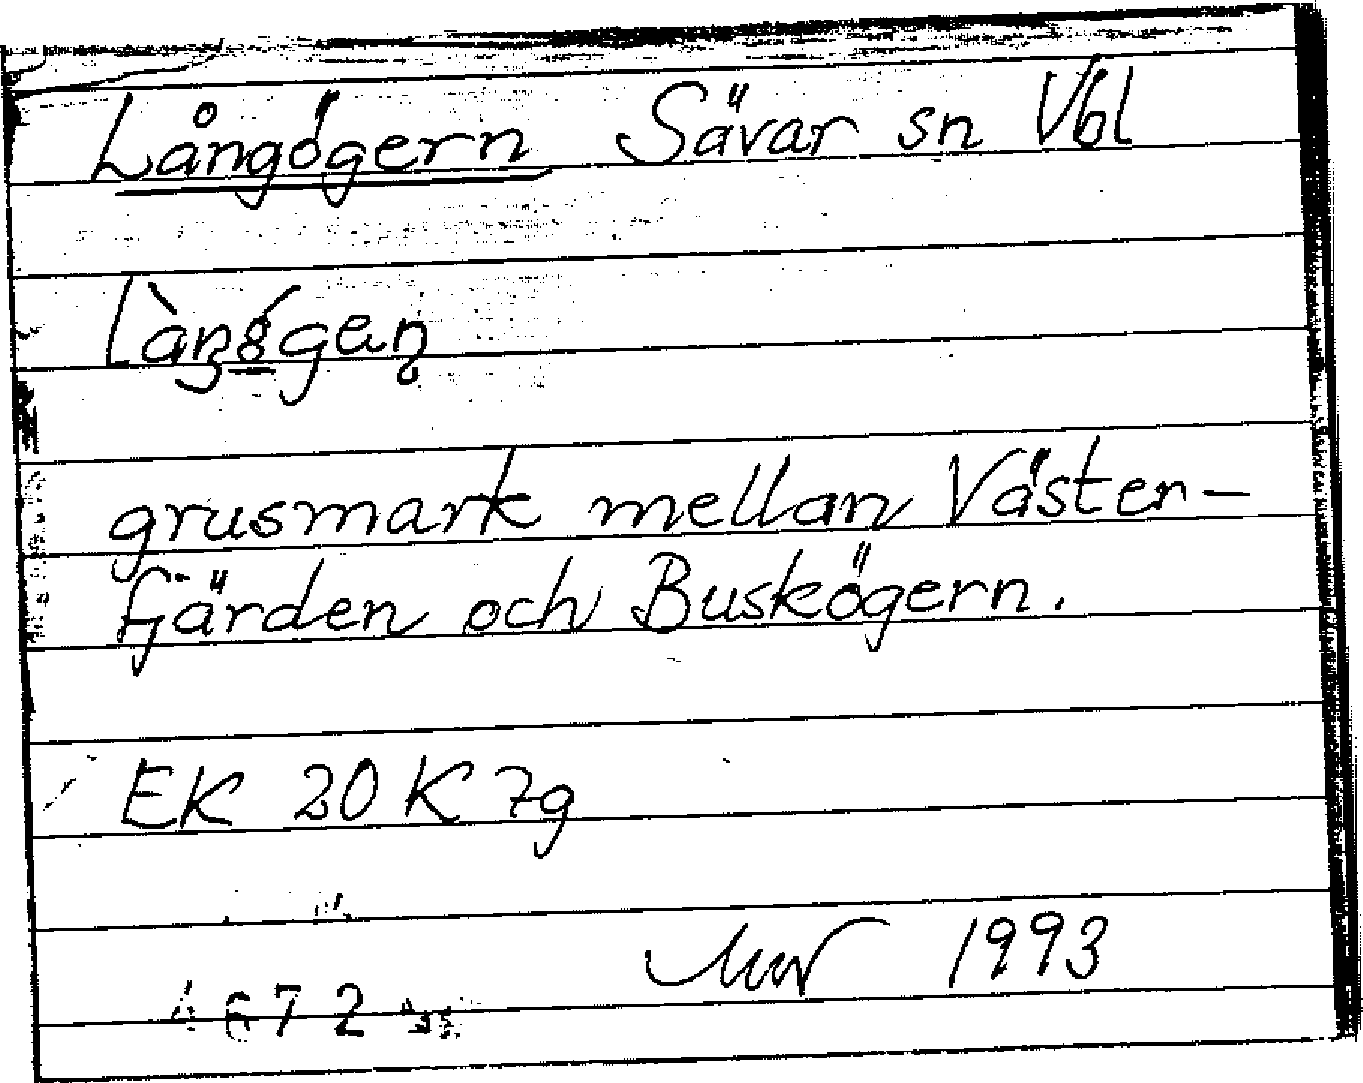 Långögern Sävar sn Vbl
grusmark mellan Väster-
fjärden och Buskögern.
EK 20 K 7g
1993
4672